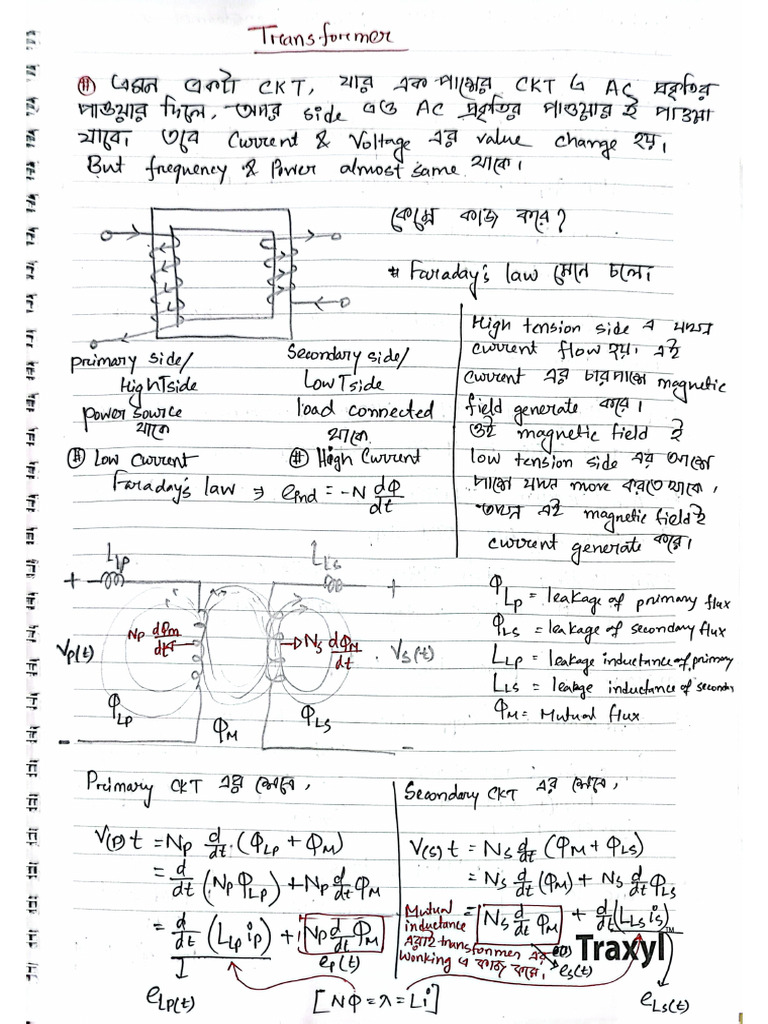 Transformer
# এমন একটা CKT, যার এক পাশের CKT এ AC প্রকৃতির
পাওয়ার দিলে, অপর side এও AC প্রকৃতির পাওয়ার ই পাওয়া
যাবে। তবে Current & Voltage এর value change হয়।
But frequency & Power almost same থাকে।
কেমনে কাজ করে?
* Faraday's law মেনে চলে।
primary side/
High T side
power source
থাকে
Secondary side/
Low T side
load connected
থাকে
# Low Current
# High Current
Faraday's law ⇒ e_ind = -N dΦ/dt
High tension side এ যখন
current flow হয়। এই
current এর চারপাশে magnetic
field generate করে।
ওই magnetic field ই
low tension side এর আশে
পাশে যখন move করতে থাকে,
তখন এই magnetic field ই
current generate করে।
L_Lp L_Ls
+ +
V_P(t) N_P dΦ_m/dt N_S dΦ_M/dt V_S(t)
Φ_LP Φ_M Φ_LS
- -
Φ_LP = leakage of primary flux
Φ_LS = leakage of secondary flux
L_LP = leakage inductance of primary
L_LS = leakage inductance of second
Φ_M = Mutual flux
Primary CKT এর ক্ষেত্রে,
V(P)t = N_P d/dt (Φ_LP + Φ_M)
= d/dt (N_P Φ_LP) + N_P d/dt Φ_M
= d/dt (L_LP i_P) + N_P d/dt Φ_M
e_LP(t) e_P(t)
Secondary CKT এর ক্ষেত্রে,
V(S)t = N_S d/dt (Φ_M + Φ_LS)
= N_S d/dt (Φ_M) + N_S d/dt Φ_LS
= N_S d/dt Φ_M + d/dt (L_LS i_S)
Mutual
inductance
এরাই transformer এর
working এ কাজ করে।
e_S(t)
e_LS(t)
[NΦ = λ = Li]
Traxyl™